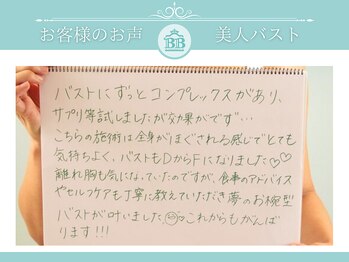 お客様のお声
BB
美人バスト
バストにずっとコンプレックスがあり、
サプリ等試しましたが効果がでず…
こちらの施術は全身がほぐされる感じでとても
気持ちよく、バストもDからFになりました♡♡
離れ胸も気になっていたのですが、食事のアドバイス
やセルフケアも丁寧に教えていただき夢のお椀型
バストが叶いました。これからもがんば
ります!!!